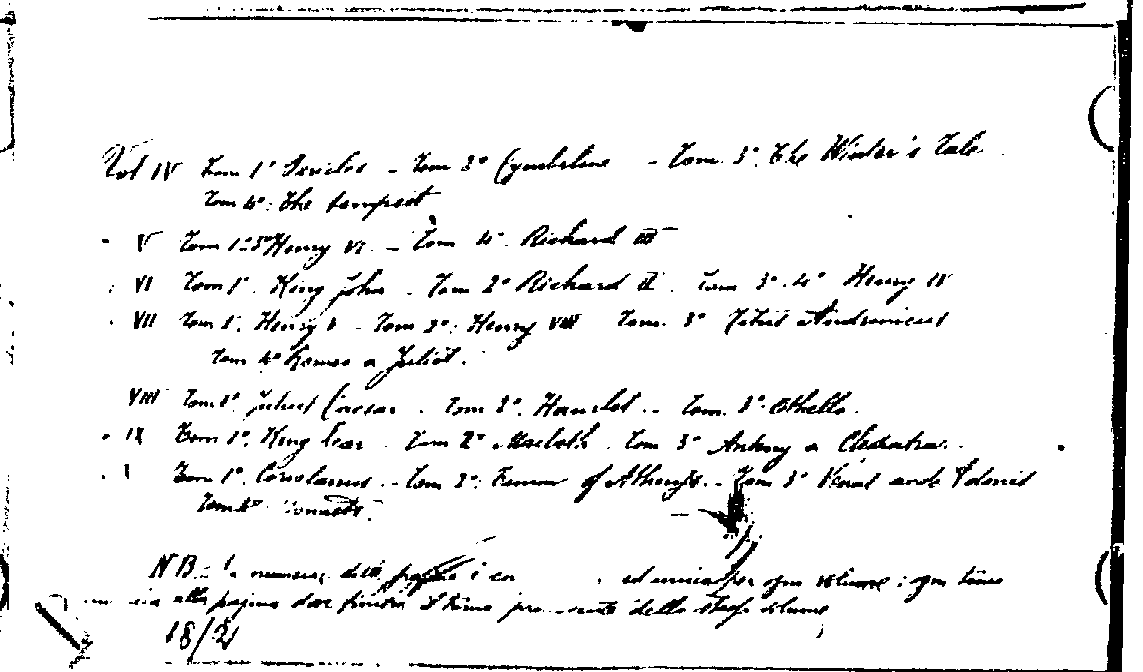 Vol IV Tom 1° Pericles - Tom 2° Cymbeline - Tom. 3°. The Winter's Tale
Tom 4°. The tempest
V Tom 1-3° Henry VI. - Tom 4°. Richard III
VI Tom 1°. King John - Tom 2° Richard II. Tom 3°-4° Henry IV
VII Tom 1°. Henry V - Tom 2°. Henry VIII Tom. 3° Titus Andronicus
Tom 4° Romeo a Juliet.
VIII Tom 1°. Julius Caesar. Tom 2°. Hamlet - Tom. 3°. Othello.
IX Tom 1°. King Lear. Tom 2° Macbeth. Tom 3° Antony a Cleopatra.
Tom 1°. Coriolanus - Tom 2°. Timon of Athens - Tom 3° Venus and Adonis
Tom 4° Sonnets.
NB. numeraz. delle pagine è per ogni volume: ogni tomo
alla pagina dove finisce il tomo dello stesso volume
18/21